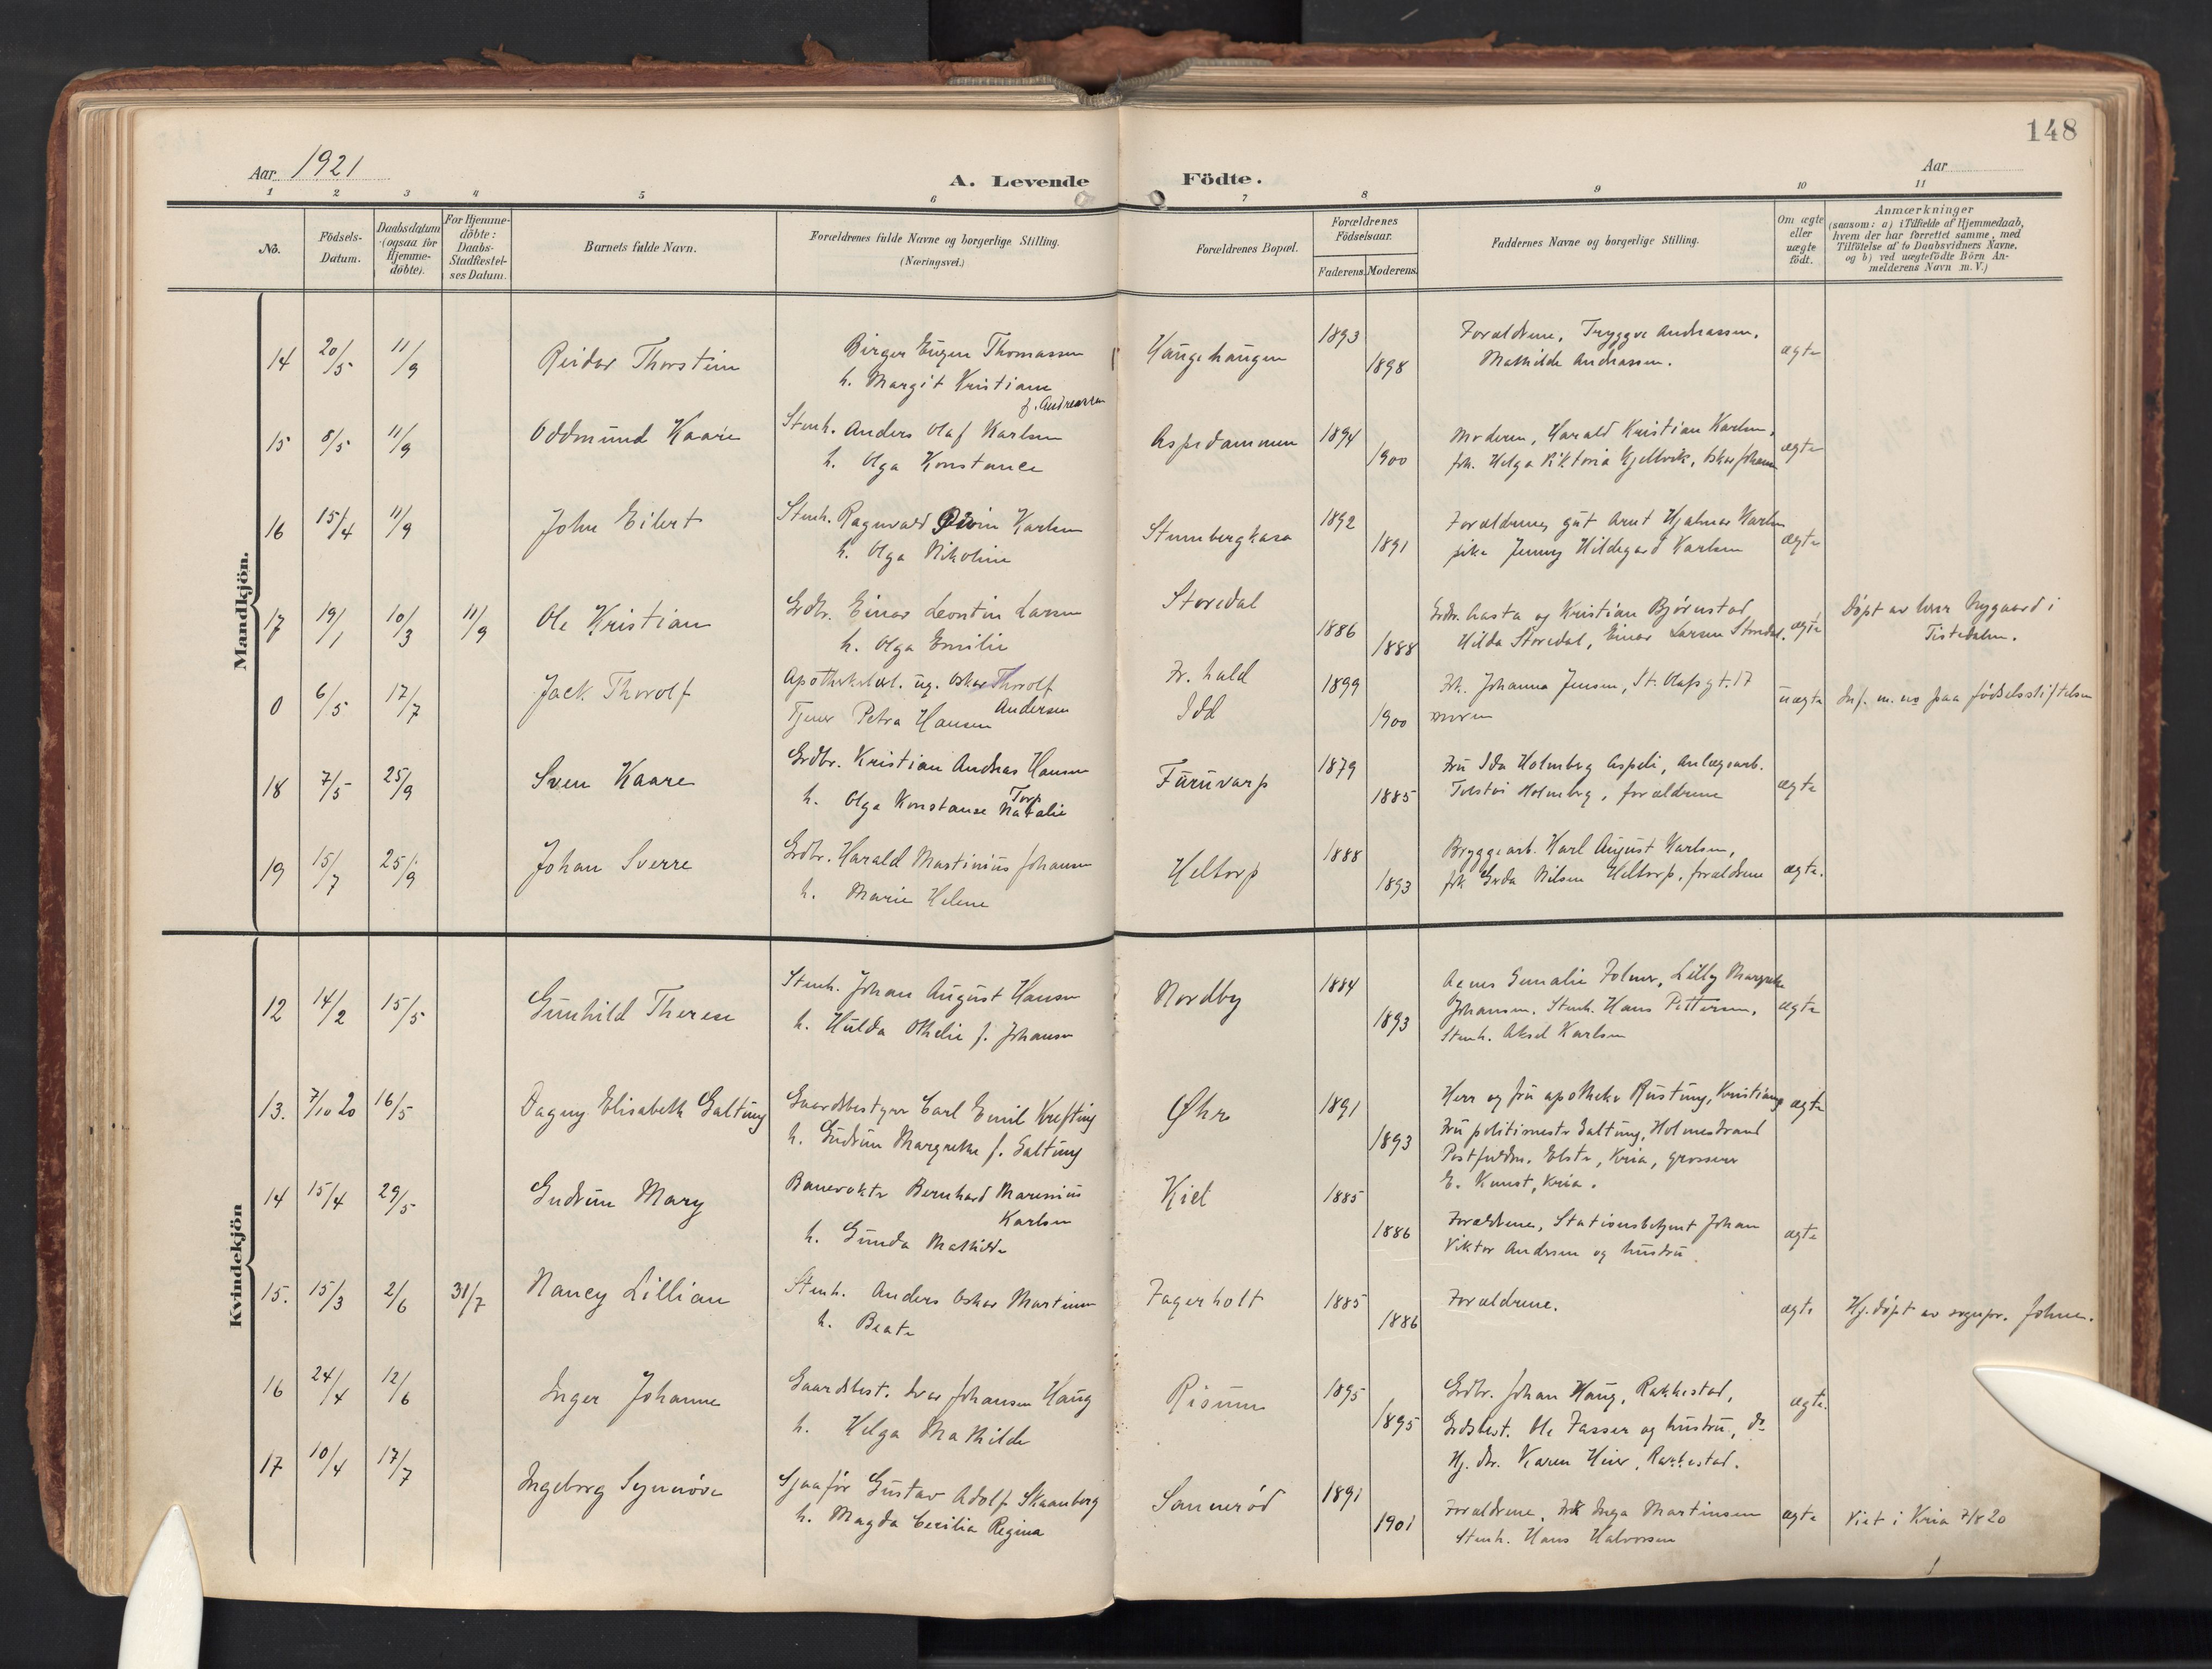 148
Aar 1921
A. Levende
Födte.
Aar
1 2 3 4 5 6 7 8 9 10 11
No.
Födsels-
Datum.
Daabsdatum
(ogsaa for
Hjemme-
döbte).
For Hjemme-
döbte:
Daabs-
Stadfæstel-
ses Datum.
Barnets fulde Navn.
Forældrenes fulde Navne og borgerlige Stilling.
(Næringsvei.)
Forældrenes Bopæl.
Forældrenes
Födselsaar.
Faderens. Moderens.
Faddernes Navne og borgerlige Stilling.
Om ægte
eller
uægte
födt.
Anmærkninger
(saasom: a) i Tilfælde af Hjemmedaab,
hvem der har forrettet samme, med
Tilföielse af to Daabsvidners Navne,
og b) ved uægtefödte Börn An-
melderens Navn m.V.)
Mandkjön.
14 20/5 11/9 Reidar Thorstein
Birger Eugen Thomassen
h. Margit Kristiane
f. Andreassen
Haugehaugen 1893 1898
Forældrene, Tryggve Andreassen,
Mathilde Andreassen.
ægte
15 8/5 11/9 Oddmund Kaare
Stenh. Anders Olaf Karlsen
h. Olga Konstance
Aspedammen 1894 1900
Moderen, Harald Kristian Karlsen,
frk. Helga Viktoria Kjellvik, Oskar Johansen
ægte
16 15/4 11/9 John Eilert
Stenh. Ragnvald Karlsen
h. Olga Nikoline
1892 1891
Forældrene, gut Arnt Hjalmar Karlsen
pike Jenny Hildegard Karlsen
ægte
17 19/1 10/3 11/9 Ole Kristian
Grdbr. Einar Leontin Larsen
h. Olga Emilie
Storedal 1886 1888
Grdbr. Aasta og Kristian Bjørnstad
Hilda Storedal, Einar Larsen Storedal.
ægte
Døpt av herr Nygaard i
Tistedalen.
0 6/5 17/7 Jack Thorolf
ug. Oskar Thorolf
Andersen
Tjener Petra Hansen
Fr. hald
Idd
1899 1900
Frk. Johanna Jensen, St. Olafs gt. 17
moren
uægte
paa fødselsstiftelsen
18 7/5 25/9 Sven Kaare
Grdbr. Kristian Andreas Hansen
Torp
h. Olga Konstanse Natalie
Furuvarp 1879 1885
Fru Ida Holmberg Aspeli, Anlægsarb.
Holmberg, forældrene
ægte
19 15/7 25/9 Johan Sverre
Grdbr. Harald Martinius Johansen
h. Marie Helene
Heltorp 1888 1893
Bryggearb. Karl August Karlsen,
frk Gerda Nilsen Heltorp, forældrene
ægte.
Kvindekjön
12 14/2 15/5 Gunhild Therese
Stenh. Johan August Hansen
h. Hulda Othelie f. Johansen
Nordby 1884 1893
Agnes Folmer, Lilly Margrethe
Johansen, Stenh. Hans Pettersen,
Stenh. Aksel Karlsen
ægte
13. 7/10 20 16/5 Dagny Elisabeth Galtung
Gaardsbestyrer Carl Emil Krefting
h. Gudrun Margrethe f. Galtung
Øhre 1891 1893
Herr og fru apotheker Rustung, Kristiania
Fru politimester Galtung, Holmestrand
Postfuldm. Elster, Kria, grosserer
E. Kunst, Kria.
ægte
14 15/4 29/5 Gudrun Mary
Banevokter Bernhard Marenius
Karlsen
h. Gunda Mathilde
Kiel 1885 1886
Forældrene, Stationsbetjent Johan
Viktor Andersen og hustru.
ægte
15. 15/3 2/6 31/7 Nancy Lillian
Stenh. Anders Oskar Martinsen
h. Beate
Fagerholt 1885 1886
Forældrene.
ægte
Hj. døpt av sognepr. Johnsen.
16 24/4 12/6 Inger Johanne
Gaardsbest. Ivar Johansen Haug
h. Helga Mathilde
Risum 1895 1895
Grdbr. Johan Haug, Rakkestad,
Grdsbest. Ole Fasser og hustru, do
Hj. dtr. Karen Heier, Rakkestad.
ægte.
17 10/4 17/7 Ingeborg Synnøve
Sjaafør Gustav Adolf Skaanberg
h. Magda Cecilia Regina
Sannerød 1891 1901
Forældrene, Frk Inga Martinsen
Stenh. Hans Halvorsen
ægte
Viet i Kria 7/8 20